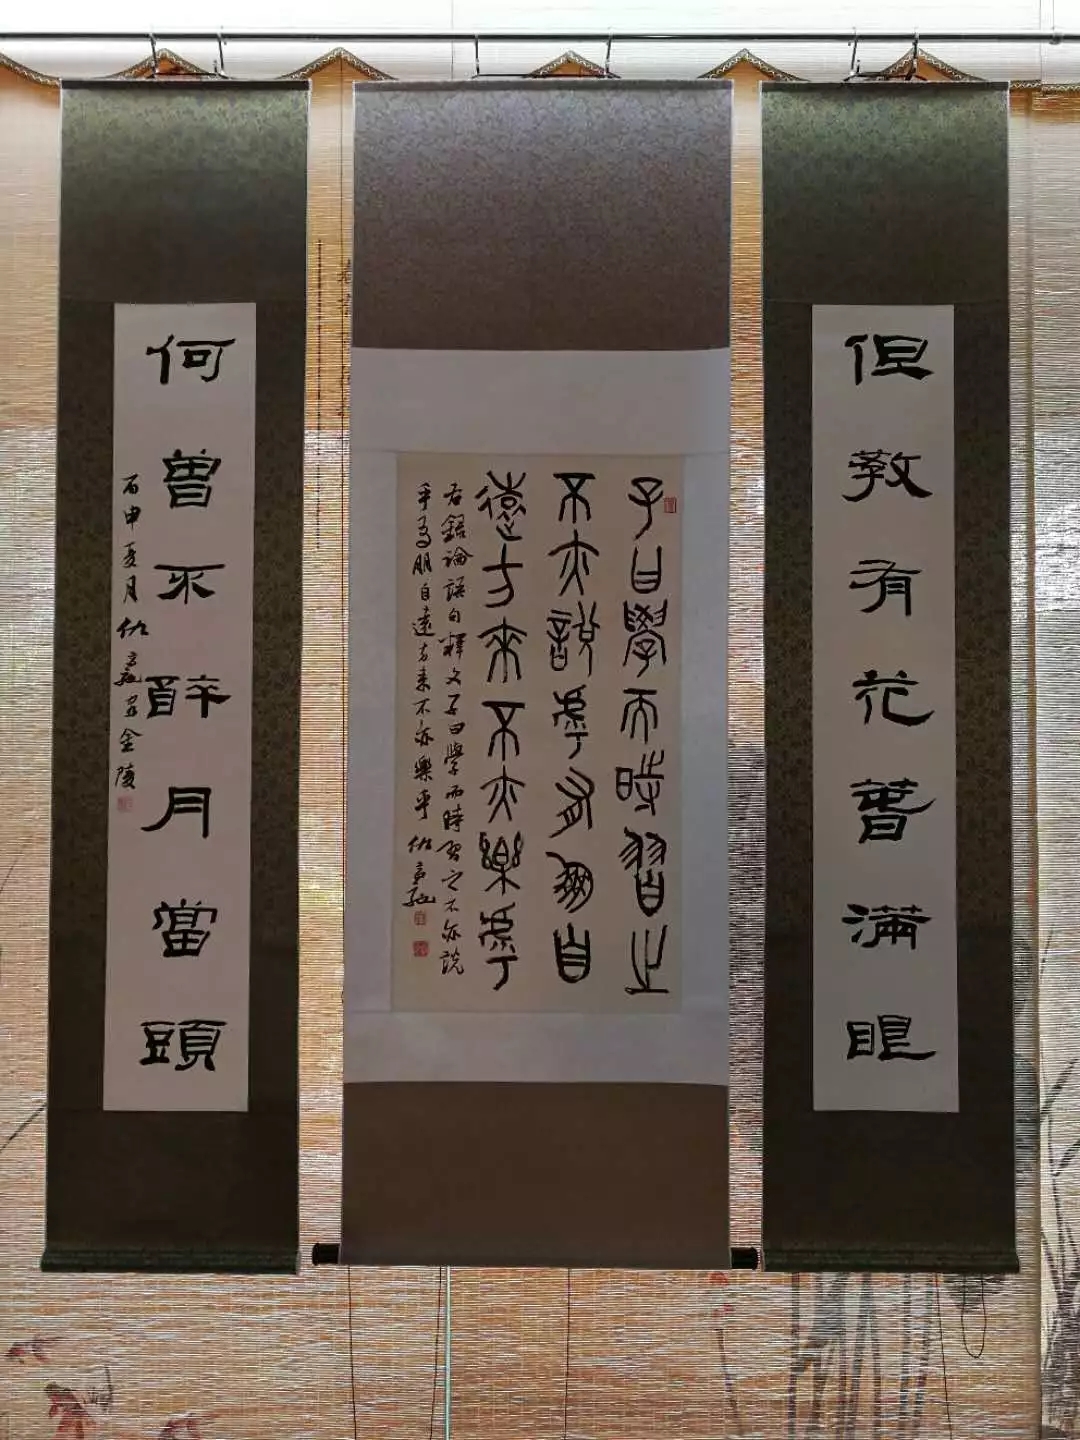 但教有花春滿眼
子曰學而時習之
不亦說乎有朋自
遠方來不亦樂乎
右錄論語句釋文子曰學而時習之不亦說
乎有朋自遠方来不亦樂乎 仇高馳
何曾不醉月當頭
丙申夏月仇高馳金陵